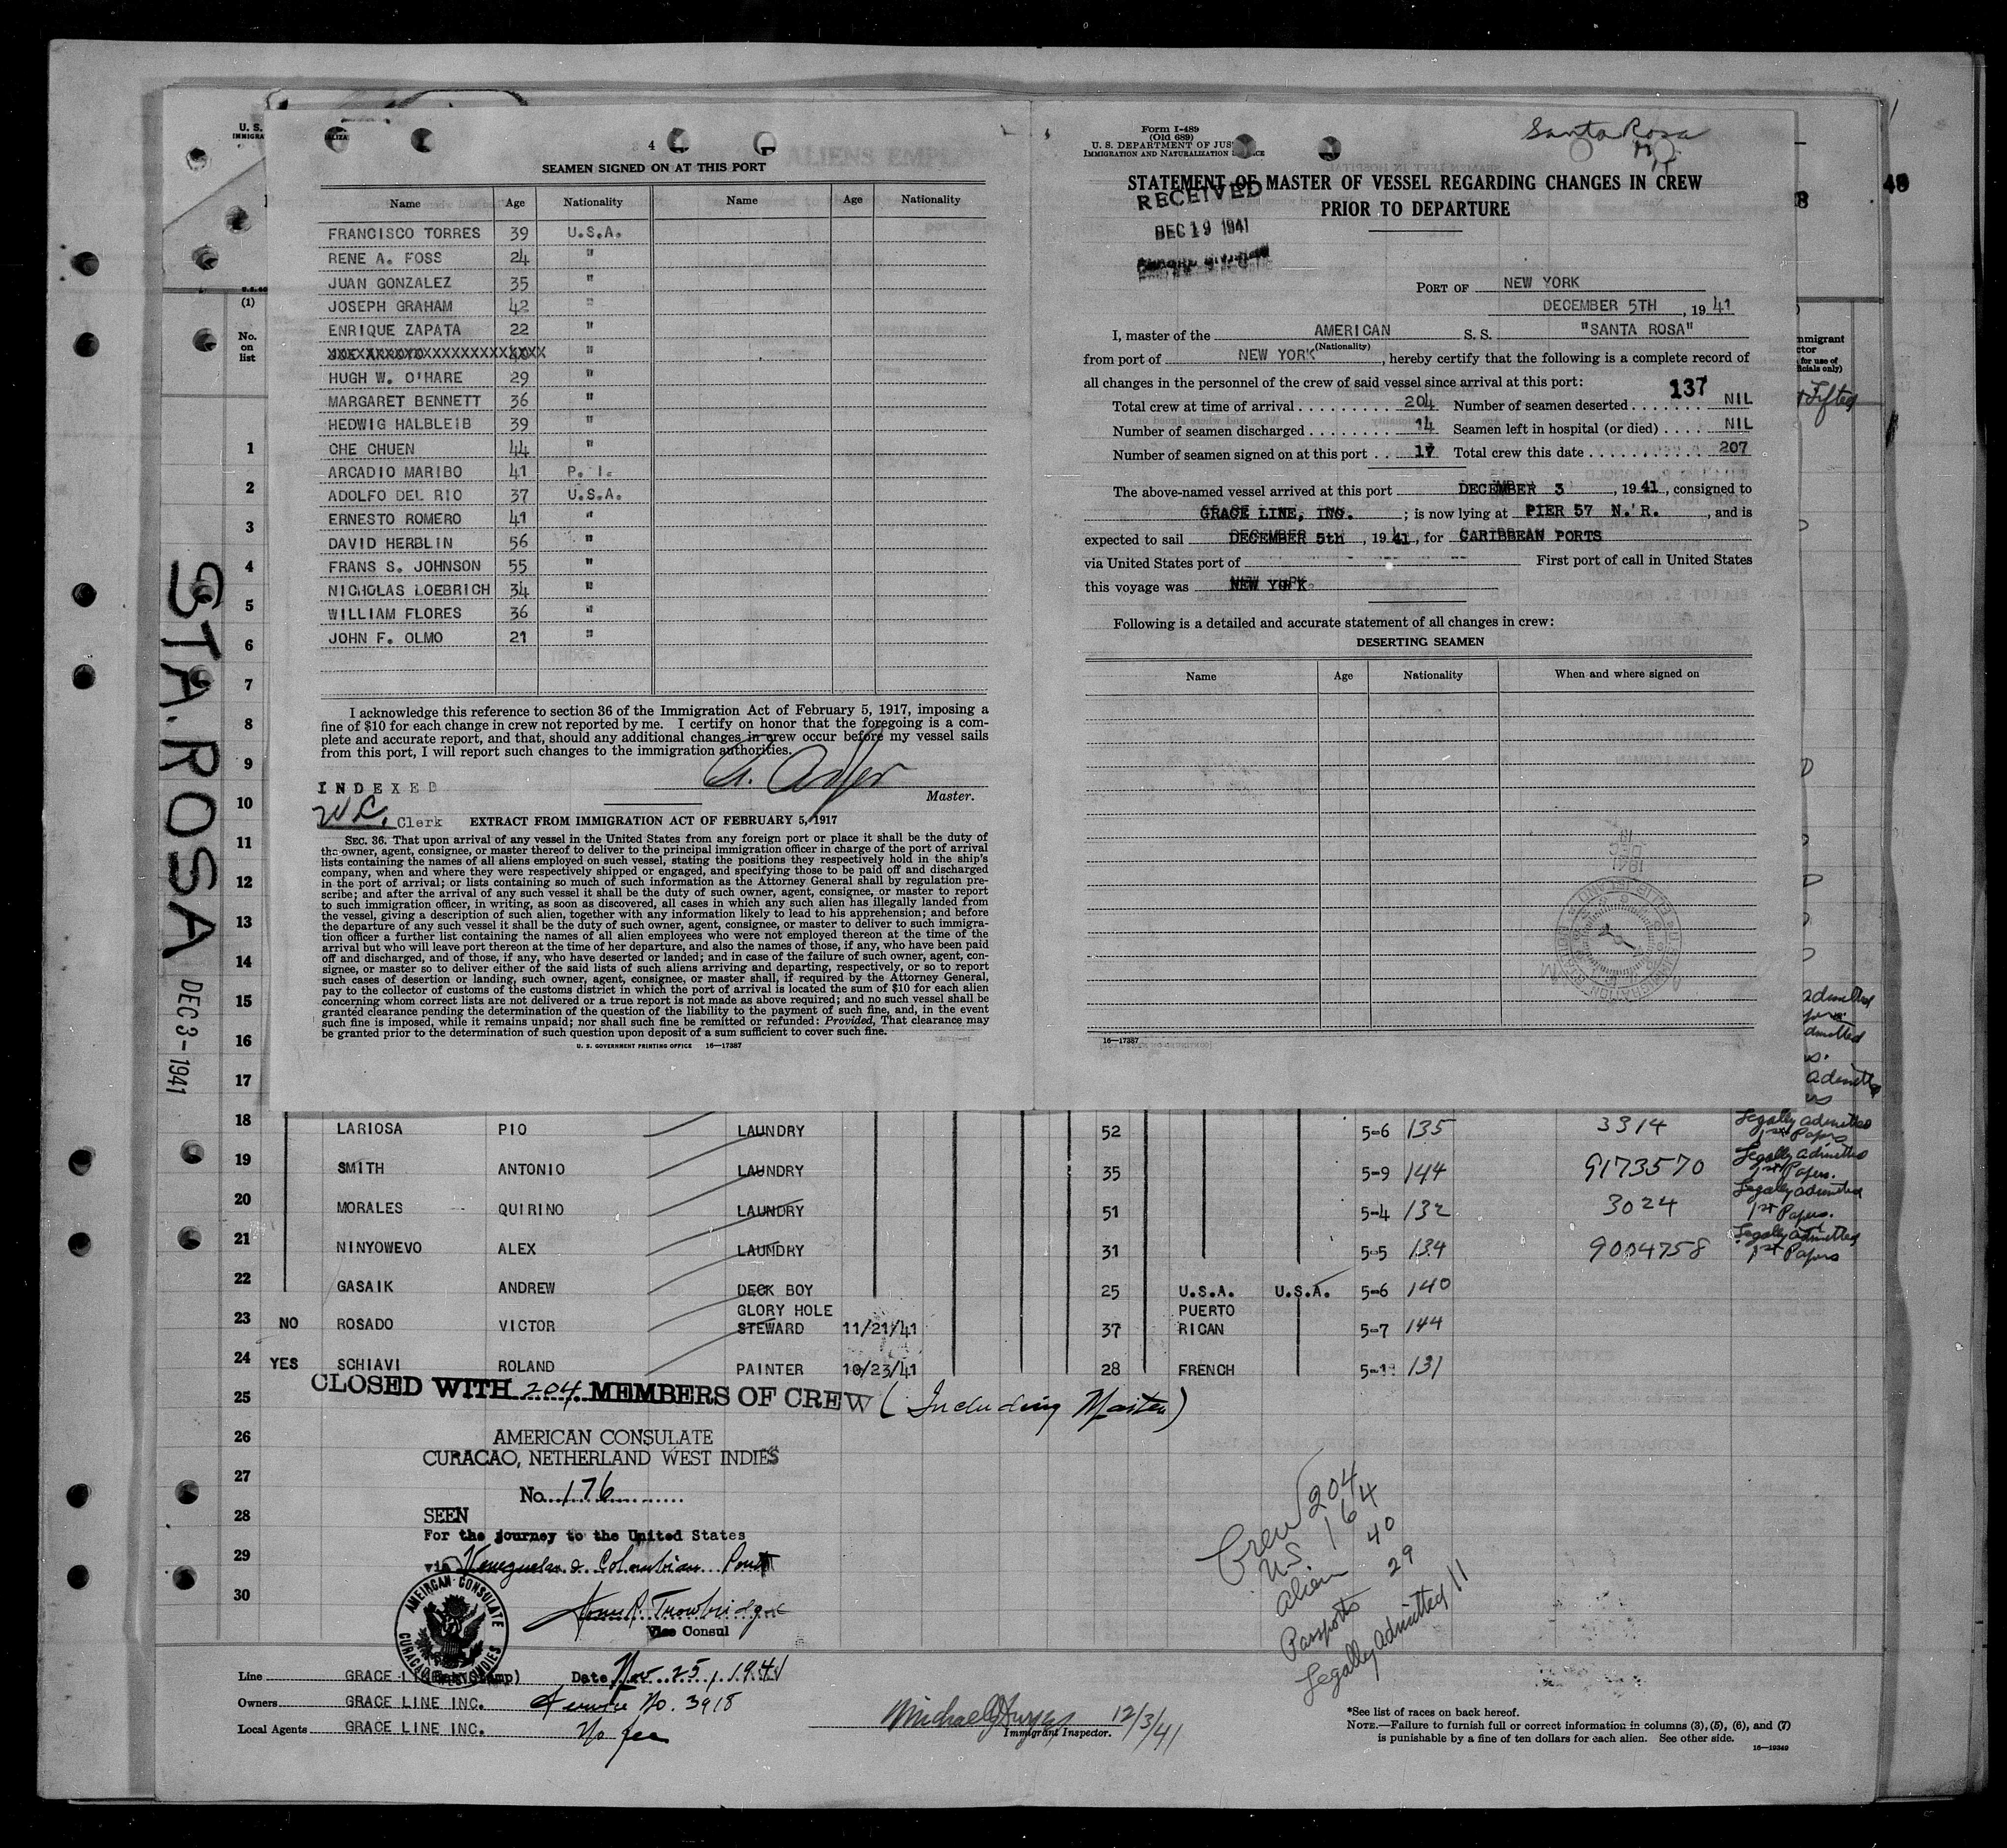 4
SEAMEN SIGNED ON AT THIS PORT
Name Age Nationality Name Age Nationality
FRANCISCO TORRES 39 U.S.A.
RENE A. FOSS 24 "
JUAN GONZALEZ 35 "
JOSEPH GRAHAM 42 "
ENRIQUE ZAPATA 22 "
"
HUGH W. O'HARE 29 "
MARGARET BENNETT 36 "
HEDWIG HALBLEIB 39 "
CHE CHUEN 44 "
ARCADIO MARIBO 41 P. I.
ADOLFO DEL RIO 37 U.S.A.
ERNESTO ROMERO 41 "
DAVID HERBLIN 56 "
FRANS S. JOHNSON 55 "
NICHOLAS LOEBRICH 34 "
WILLIAM FLORES 36 "
JOHN F. OLMO 21 "
I acknowledge this reference to section 36 of the Immigration Act of February 5, 1917, imposing a
fine of $10 for each change in crew not reported by me. I certify on honor that the foregoing is a com-
plete and accurate report, and that, should any additional changes in crew occur before my vessel sails
from this port, I will report such changes to the immigration authorities.
INDEXED
Master.
Clerk
EXTRACT FROM IMMIGRATION ACT OF FEBRUARY 5, 1917
SEC. 36. That upon arrival of any vessel in the United States from any foreign port or place it shall be the duty of
the owner, agent, consignee, or master thereof to deliver to the principal immigration officer in charge of the port of arrival
lists containing the names of all aliens employed on such vessel, stating the positions they respectively hold in the ship's
company, when and where they were respectively shipped or engaged, and specifying those to be paid off and discharged
in the port of arrival; or lists containing so much of such information as the Attorney General shall by regulation pre-
scribe; and after the arrival of any such vessel it shall be the duty of such owner, agent, consignee, or master to report
to such immigration officer, in writing, as soon as discovered, all cases in which any such alien has illegally landed from
the vessel, giving a description of such alien, together with any information likely to lead to his apprehension; and before
the departure of any such vessel it shall be the duty of such owner, agent, consignee, or master to deliver to such immigra-
tion officer a further list containing the names of all alien employees who were not employed thereon at the time of the
arrival but who will leave port thereon at the time of her departure, and also the names of those, if any, who have been paid
off and discharged, and of those, if any, who have deserted or landed; and in case of the failure of such owner, agent, con-
signee, or master so to deliver either of the said lists of such aliens arriving and departing, respectively, or so to report
such cases of desertion or landing, such owner, agent, consignee, or master shall, if required by the Attorney General,
pay to the collector of customs of the customs district in which the port of arrival is located the sum of $10 for each alien
concerning whom correct lists are not delivered or a true report is not made as above required; and no such vessel shall be
granted clearance pending the determination of the question of the liability to the payment of such fine, and, in the event
such fine is imposed, while it remains unpaid; nor shall such fine be remitted or refunded: Provided, That clearance may
be granted prior to the determination of such question upon deposit of a sum sufficient to cover such fine.
U. S. GOVERNMENT PRINTING OFFICE 16—17387
Form I-489
(Old 689)
U. S. DEPARTMENT OF JUS
IMMIGRATION AND NATURALIZATION
Santa Rosa
STATEMENT OF MASTER OF VESSEL REGARDING CHANGES IN CREW
PRIOR TO DEPARTURE
RECEIVED
DEC 19 1941
PORT OF NEW YORK
DECEMBER 5TH, 1941
I, master of the AMERICAN S. S. "SANTA ROSA"
(Nationality)
from port of NEW YORK, hereby certify that the following is a complete record of
all changes in the personnel of the crew of said vessel since arrival at this port:
137
Total crew at time of arrival 204 Number of seamen deserted NIL
Number of seamen discharged 14 Seamen left in hospital (or died) NIL
Number of seamen signed on at this port 17 Total crew this date 207
The above-named vessel arrived at this port DECEMBER 3, 1941, consigned to
GRACE LINE, INC.; is now lying at PIER 57 N. R., and is
expected to sail DECEMBER 5th, 1941, for CARIBBEAN PORTS
via United States port of First port of call in United States
this voyage was NEW YORK.
Following is a detailed and accurate statement of all changes in crew:
DESERTING SEAMEN
Name Age Nationality When and where signed on
16—17387
48
U. S.
(1)
No.
on
list
STA. ROSA
DEC 3-1941
1
2
3
4
5
6
7
8
9
10
11
12
13
14
15
16
17
18 LARIOSA PIO LAUNDRY 52 5-6 135 3314 Legally admitted 1st Papers
19 SMITH ANTONIO LAUNDRY 35 5-9 144 9173570 Legally admitted 1st Papers.
20 MORALES QUIRINO LAUNDRY 51 5-4 132 3024 Legally admitted 1st Papers.
21 NINYOWEVO ALEX LAUNDRY 31 5-5 134 9004758 Legally admitted 1st Papers
22 GASAIK ANDREW DECK BOY 25 U.S.A. U.S.A. 5-6 140
23 NO ROSADO VICTOR GLORY HOLE STEWARD 11/21/41 37 PUERTO RICAN 5-7 144
24 YES SCHIAVI ROLAND PAINTER 10/23/41 28 FRENCH 131
25 CLOSED WITH 204 MEMBERS OF CREW (Including Master)
26 AMERICAN CONSULATE
CURACAO, NETHERLAND WEST INDIES
27 No. 176
28 SEEN
For the journey to the United States
29 via Venezuelan & Colombian Ports
30
Trowbridge
Vice Consul
AMERICAN CONSULATE CURACAO WEST INDIES
Crew 204
U.S. 164
Alien 40
Passports 29
Legally Admitted 11
Line GRACE LINE Date Nov. 25, 1941
Owners GRACE LINE INC. Service No. 3918
Local Agents GRACE LINE INC. No fee
12/3/41
Immigrant Inspector.
*See list of races on back hereof.
NOTE.—Failure to furnish full or correct information in columns (3), (5), (6), and (7)
is punishable by a fine of ten dollars for each alien. See other side.
16—19349